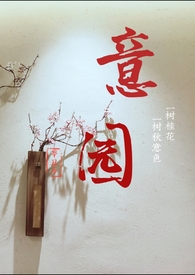 意园
一树桂花
一树秋意色